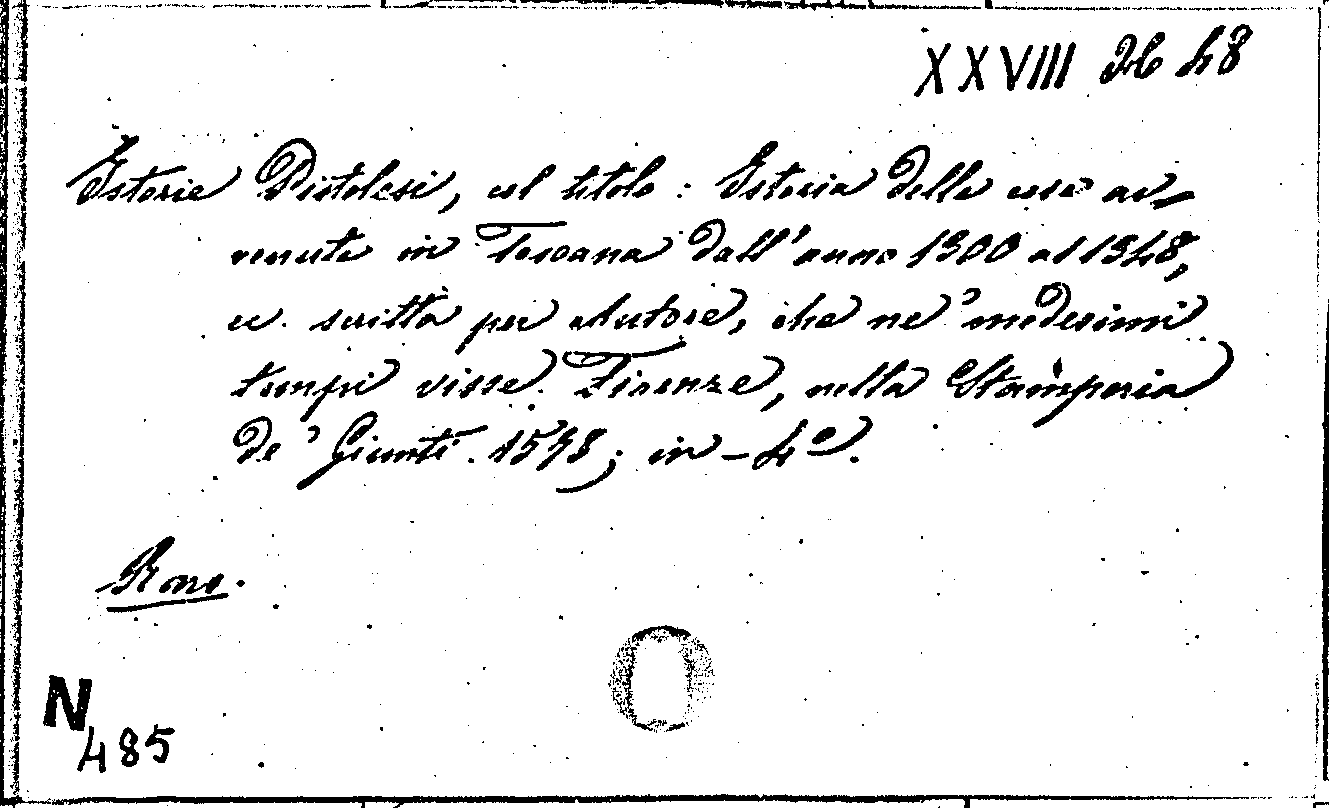 XXVIII Db 48
Istorie Pistolesi, col titolo: Istoria delle cose av-
venute in Toscana dall'anno 1300 al 1348,
ec. scritta per Autore, che ne' medesimi
tempi visse. Firenze, nella Stamperia
de' Giunti. 1578; in-4º.
N
485